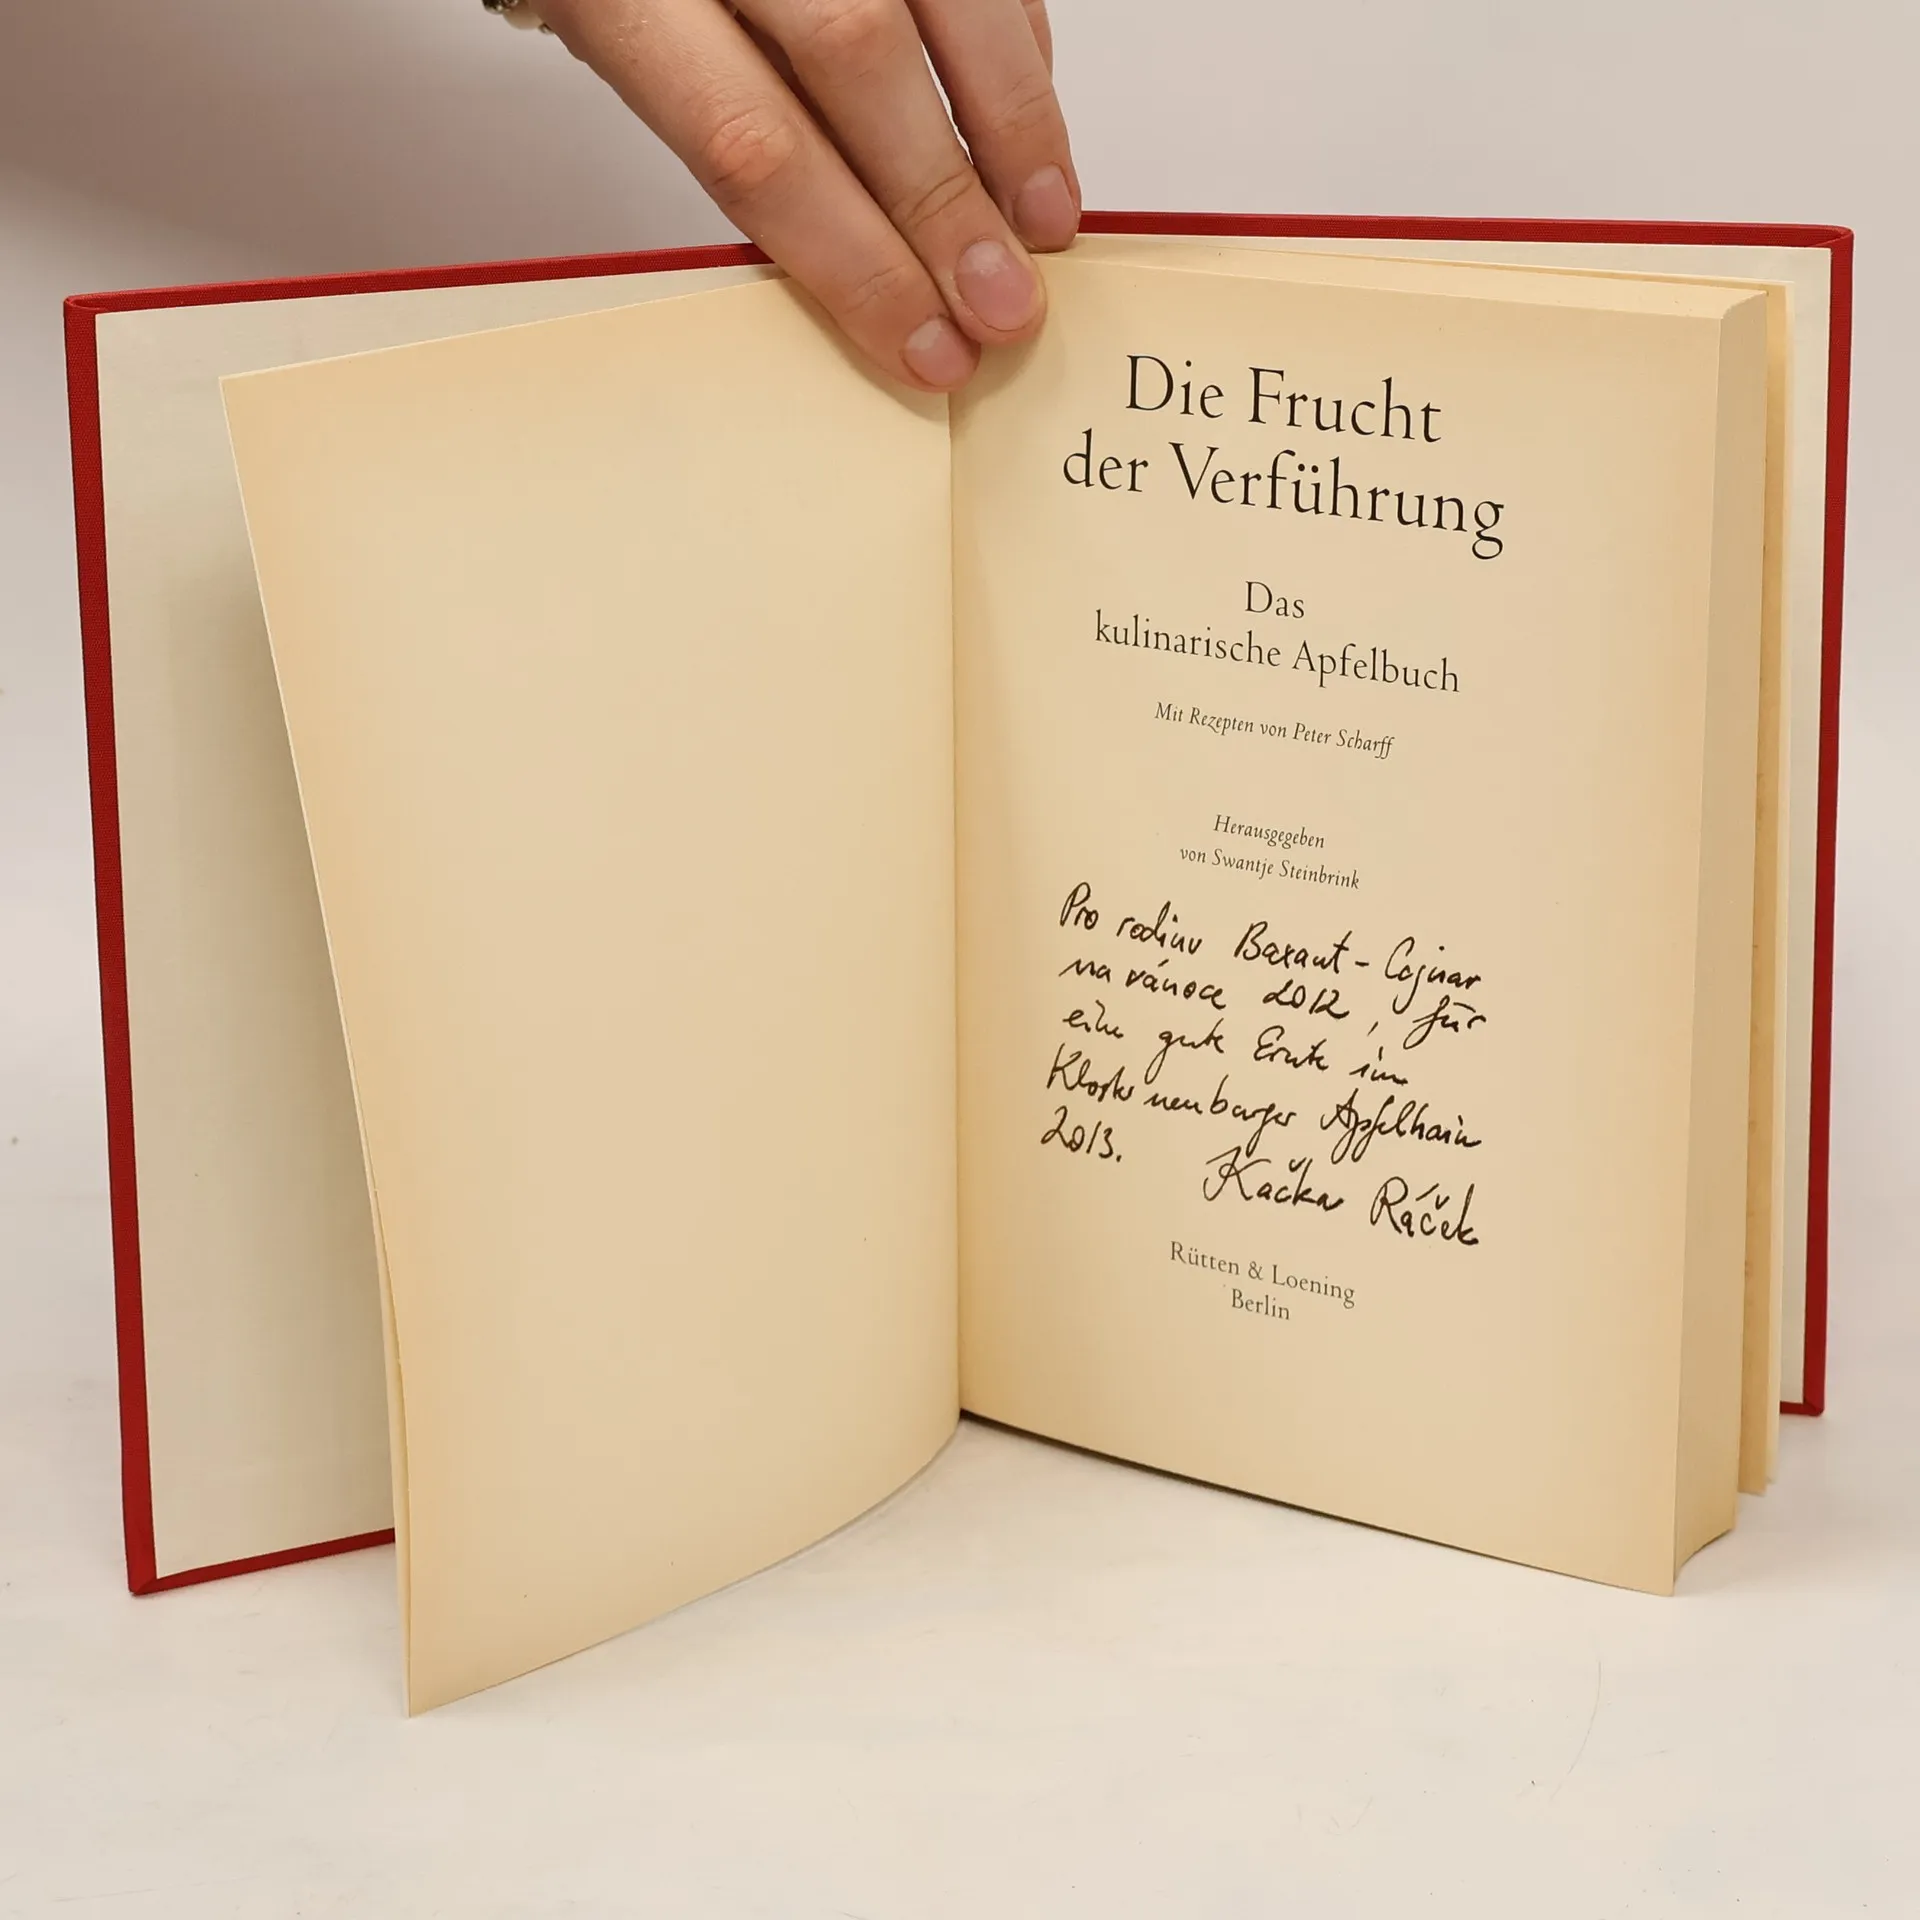 Die Frucht
der Verführung
Das
kulinarische Apfelbuch
Mit Rezepten von Peter Scharff
Herausgegeben
von Swantje Steinbrink
Pro rodinu Baxant-
na vánoce 2012, für
eine gute Ernte im
Klosterneuburger Apfelhain
2013. Kačka Ráček
Rütten & Loening
Berlin